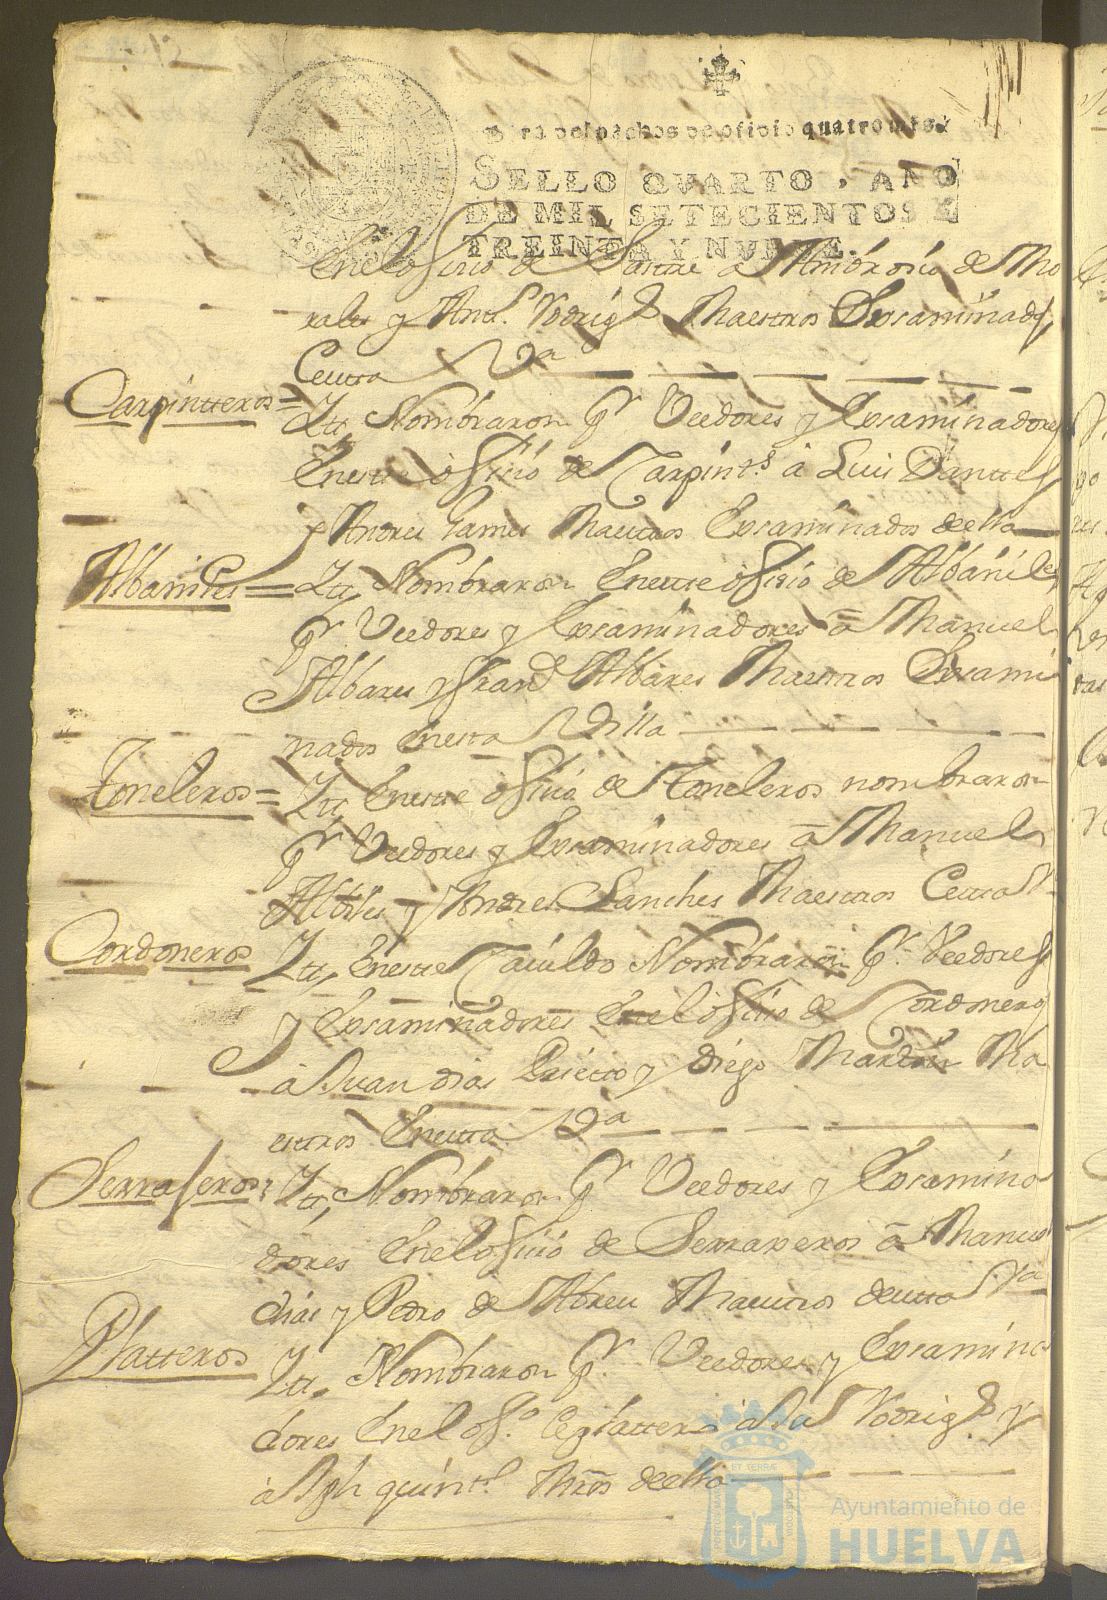 para despachos de oficio quatro mrs.
SELLO QVARTO, AÑO
DE MIL SETECIENTOS Y
TREINTA Y NUEVE.
Enel ofiçio de Sastre a Ambrosio de Mo
rales y Antt.º Rodrig.s Maestros Exsaminads
Ceutta V.a
Carpintteros = Ytt, Nombraron pr Veedores y Exsaminadores
Enestte ofiçio de Carpint.s â Luis
y Andres Games Maestros Exsaminados deella
Albaniles = Ytt, Nombraron Enestte ofiçio de Albañiles
pr Veedores y Exsaminadores â Manuel
Albares y fran.co Albares Maestros Exsami
nados Enesta Villa
Toneleros = Ytt, Enestte ofiçio de Toneleros nombraron
pr Veedores y Exsaminadores â Manuel
y Andres Sanches Maestros
Cordoneros Ytt, Enestte Cavildo Nombraron pr. Veedores
y Exsaminadores Enel ofiçio de Cordonero
â Juan dias Prietto y diego Martin Ma
esttros Enestta V.a
Serraferos: Ytt, Nombraron pr Veedores y Exsamina
dores Enel ofiçio de Serraxeros â Manuel
dias y Pedro de Abreu Maesttros destta V.a
Platteros Ytt, Nombraron pr. Veedores y Exsamina
dores Enel of.º deplattero â Rodrig.s y
â Jph quint.o Mros deella
Ayuntamiento de
HUELVA